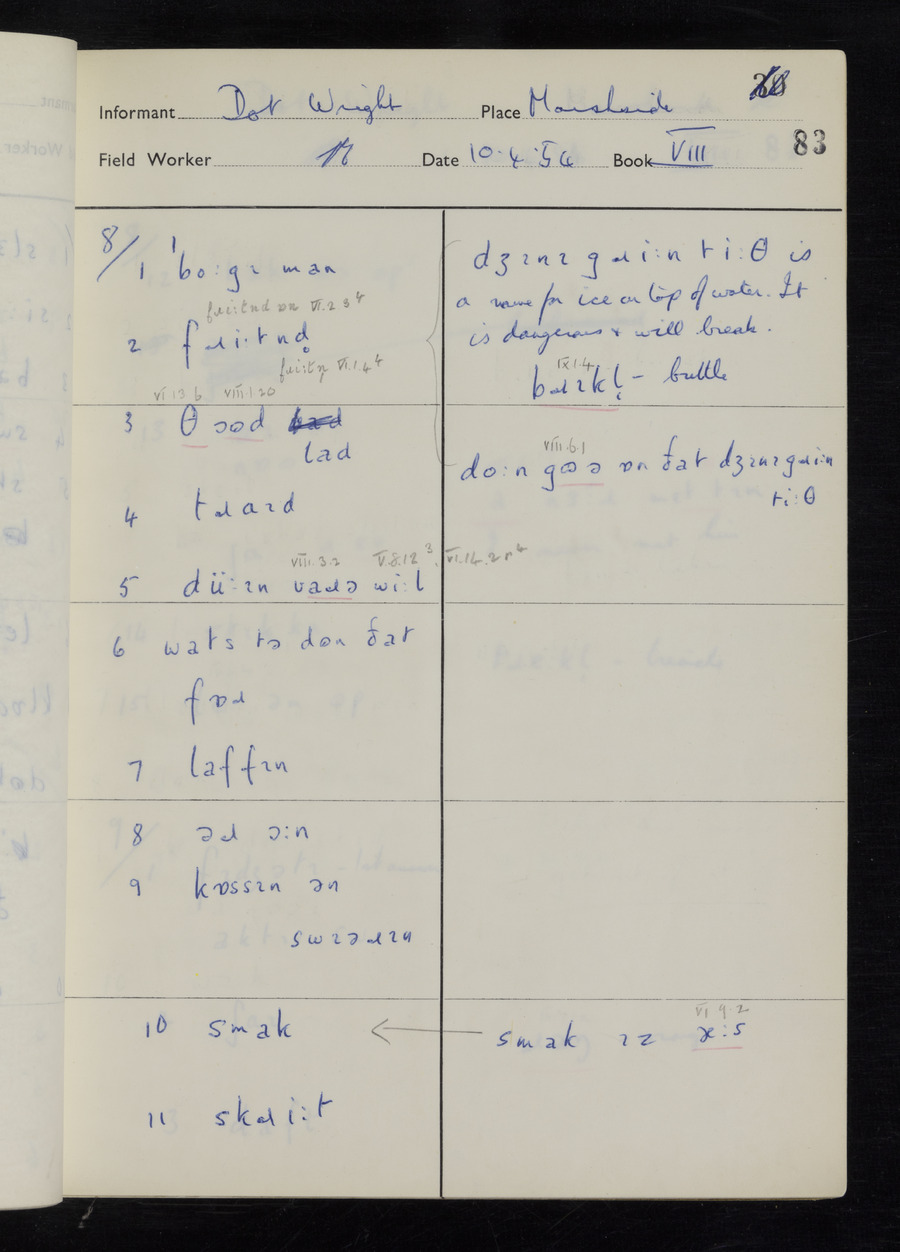 Informant Dot Wright Place Marshside
Field Worker Date 10.4.54 Book VIII 83
8/1 ˈboːgɪ man
fɹiːtnd ɒn VI.2.3⁴
2 fɹiːtnd̥
fɹiːtn̩ VI.1.4⁴
VI 13 6 VIII.1.20
3 θɔɔd
lad
4 tɹaɪd
VIII.3.2 V.8.12³, VI.14.2 n⁴
5 düːɪn ʋaɹə wiːl
6 wats tə dɒn ðat
fɒɹ
7 laffɪn
8 əɹ ɔːn
9 kɒssɪn ən
swɪəɹɪn
10 smak
11 skɹiːt
dʒɪnɪ gɹiːn tiːθ is
a name for ice on top of water. It
is dangerous + will break.
IX.1.4
bɹɪkl̩ - brittle
VIII.6.1
doːn gɔɔ ə ɒn ðat dʒɪnɪ gɹiːn
tiːθ
VI 9.2
smak ɪz æːs